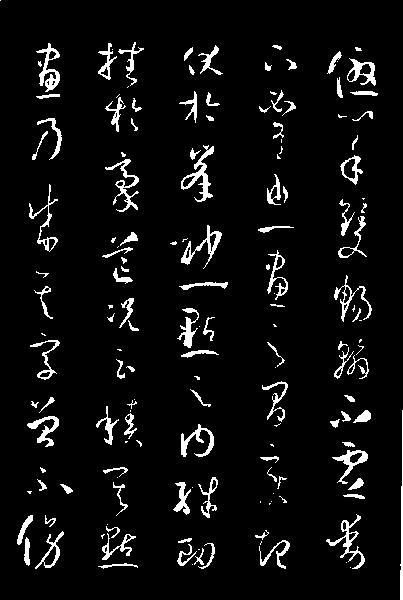 優心手雙暢翰不虛動
下必有由一畫之間變起
伏於峯杪一點之內殊衄
挫於豪芒況云積其點
畫乃成其字曾不傍